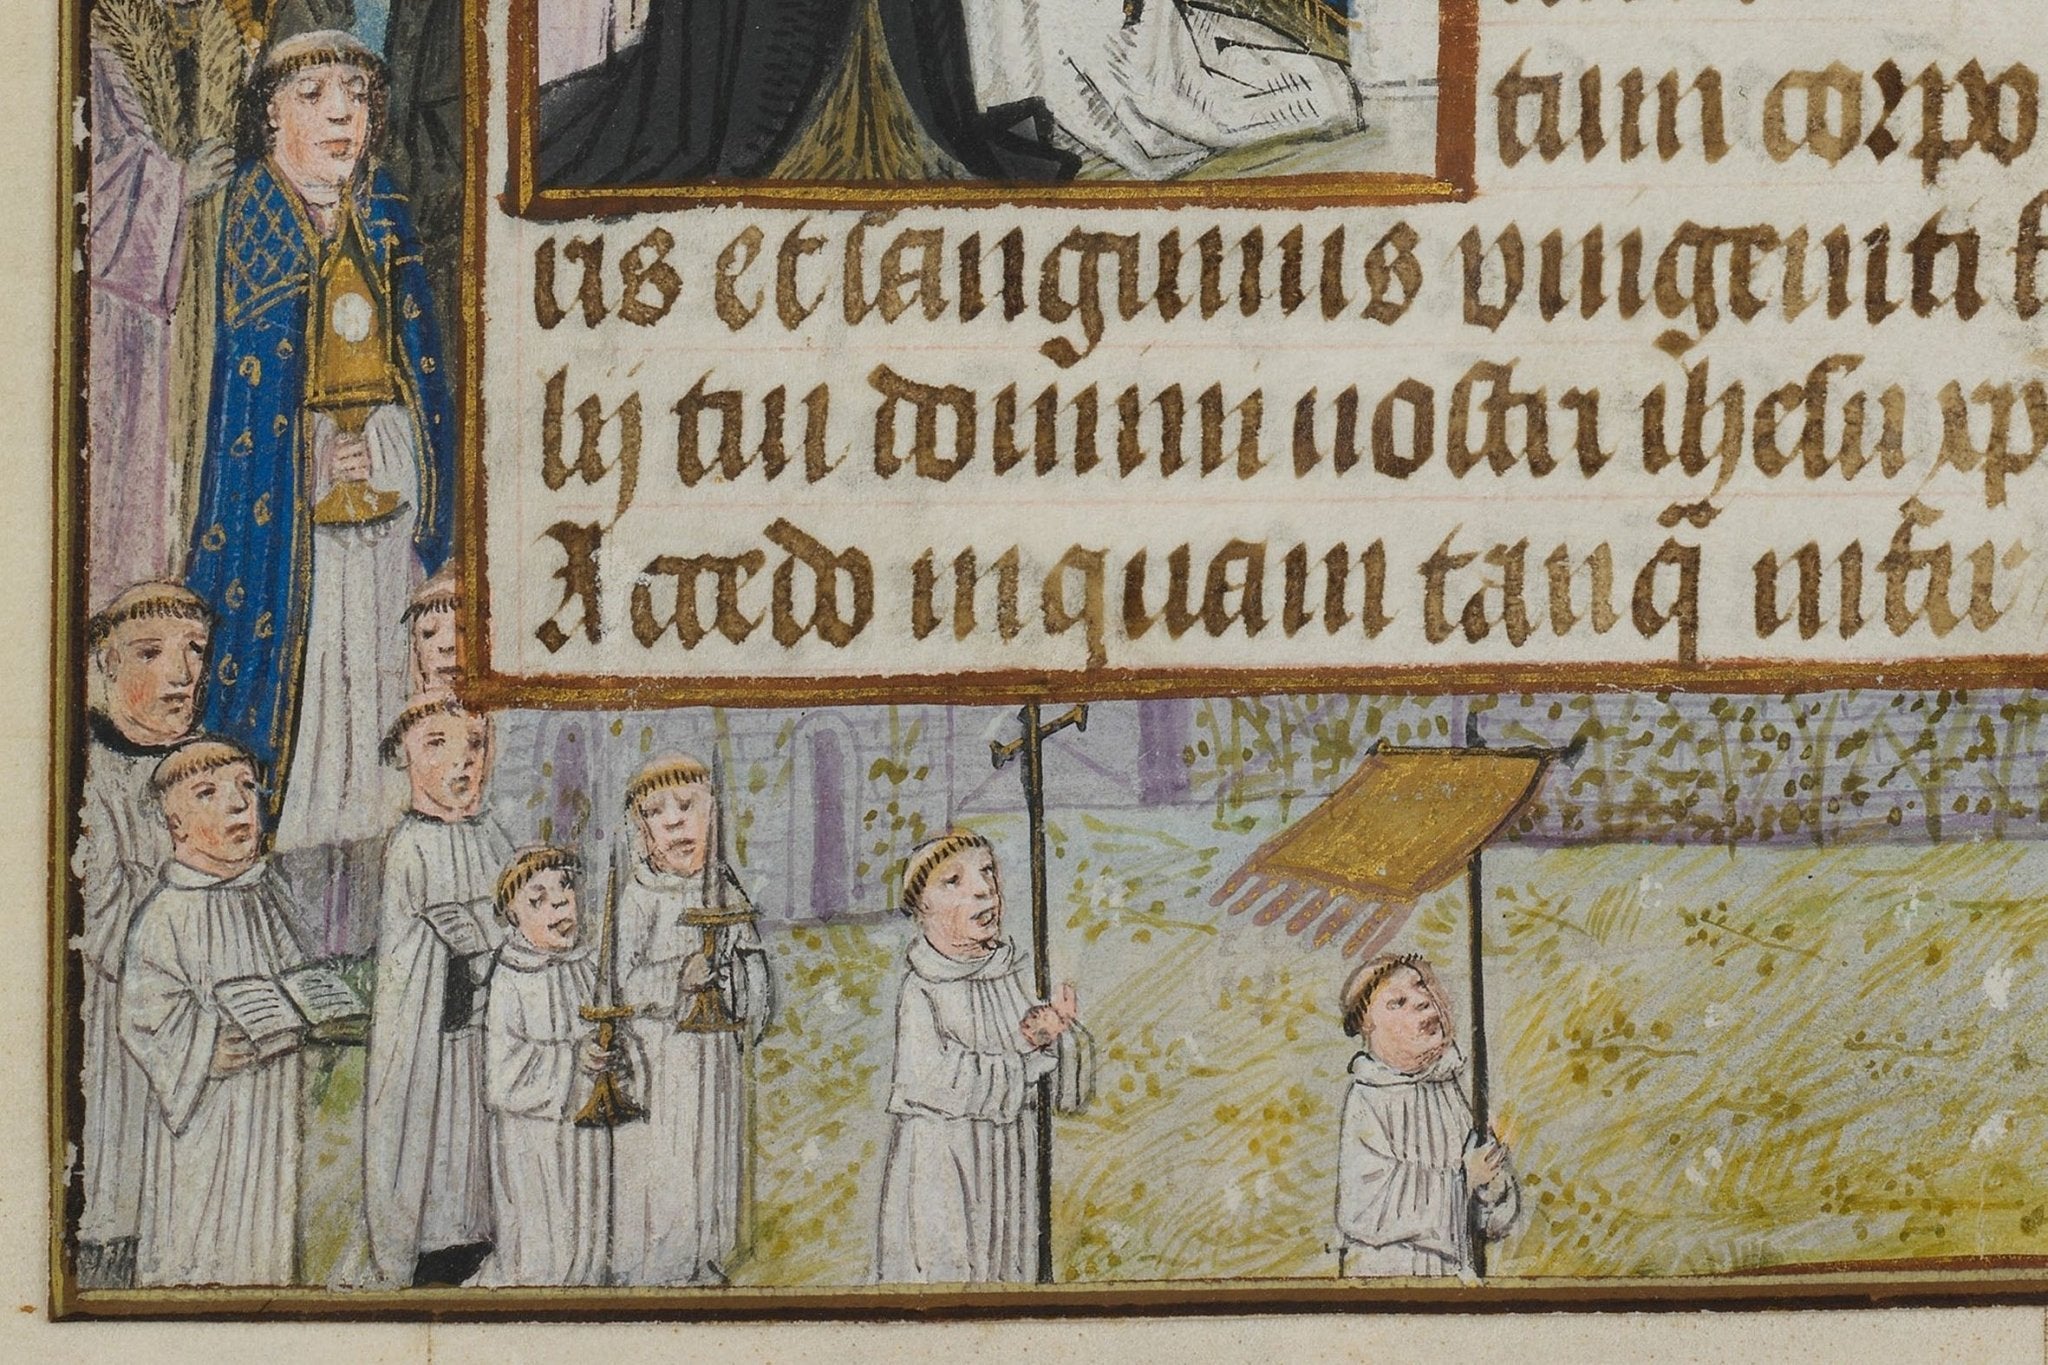 tum corpo
ris et sanguinis vnigeniti
lij tui domini nostri ihesu xp
Accedo inquam tanq̃ infir